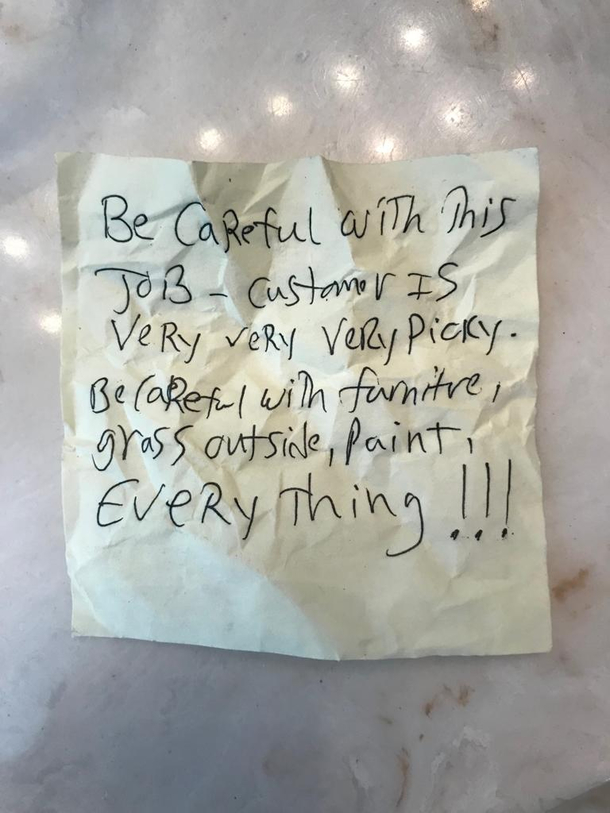 Be Careful with This
JOB - Customer IS
Very very Very Picky.
Be Careful with furnitre,
grass outside, Paint,
EVERY Thing !!!